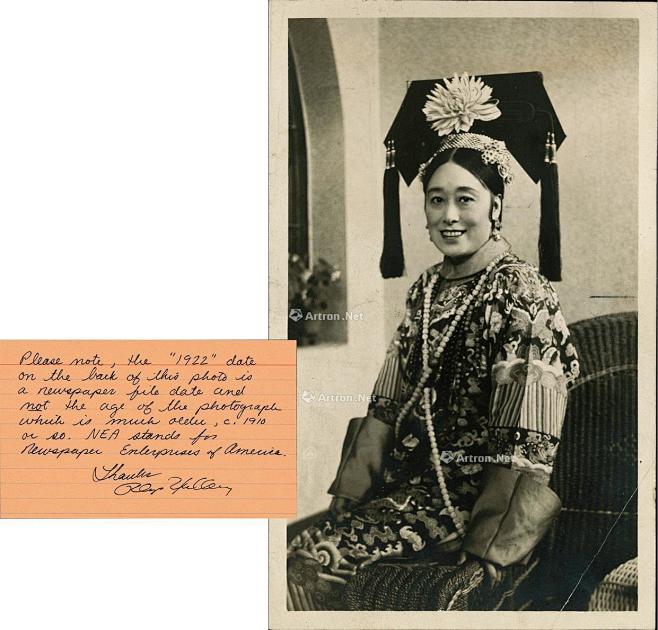 Artron.Net
Please note, the "1922" date
on the back of this photo is
a newspaper file date and
not the age of the photograph
which is much older, c. 1910
or so. NEA stands for
Newspaper Enterprises of America.
Thanks
Artron.Net
Artron.Net
Artron.Net